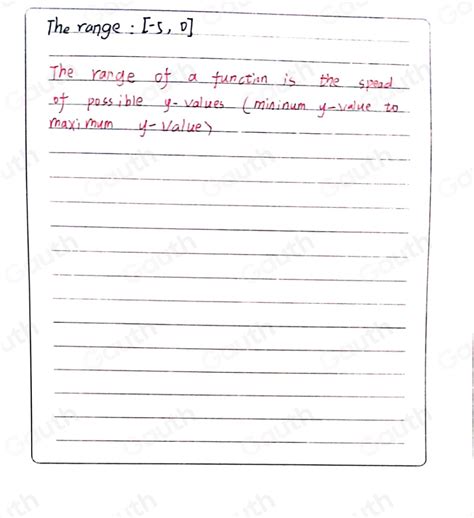 The range : [-5, 0]
The range of a function is the spead
of possible y-values (mininum y-value to
maximum y-value)